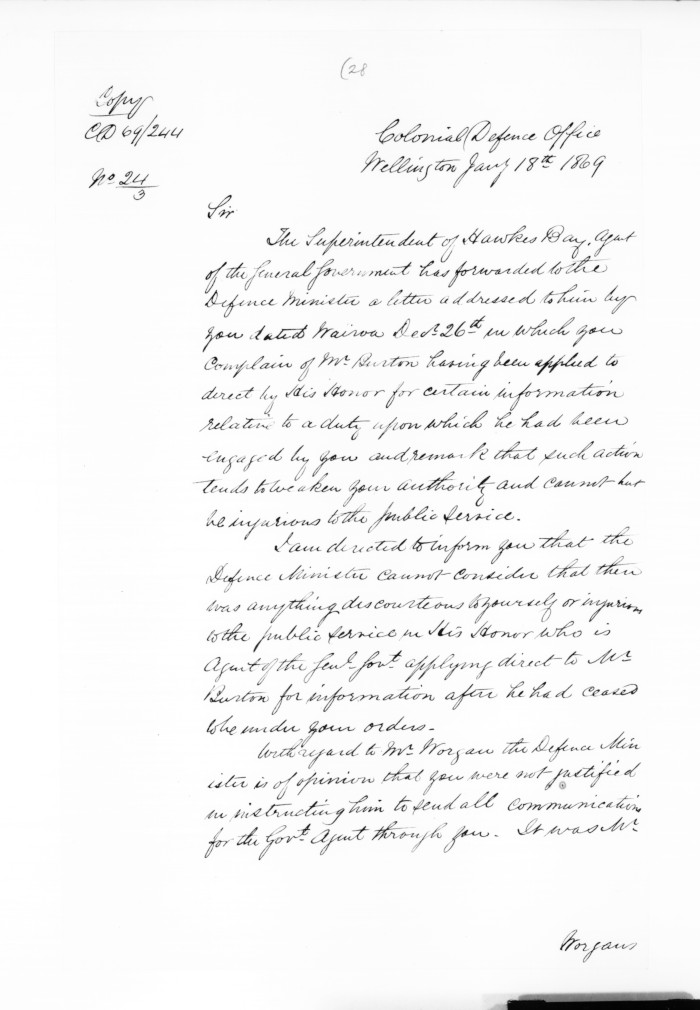 (28
Copy
CD 69/244
No 24/3
Colonial Defence Office
Wellington Jany 18th 1869
Sir
The Superintendent of Hawkes Bay, Agent
of the General Government has forwarded to the
Defence Minister a letter addressed to him by
you dated Wairoa Decr 26th in which you
complain of Mr Burton having been applied to
direct by His Honor for certain information
relative to a duty upon which he had been
engaged by you and remark that such action
tends to weaken your authority and cannot but
be injurious to the public service.
I am directed to inform you that the
Defence Minister cannot consider that there
was anything discourteous to yourself or injurious
to the public service in His Honor who is
Agent of the Genl Govt applying direct to Mr
Burton for information after he had ceased
to be under your orders.
With regard to Mr Worgan the Defence Min
ister is of opinion that you were not justified
in instructing him to send all communications
for the Govt Agent through you. It was Mr
Worgans